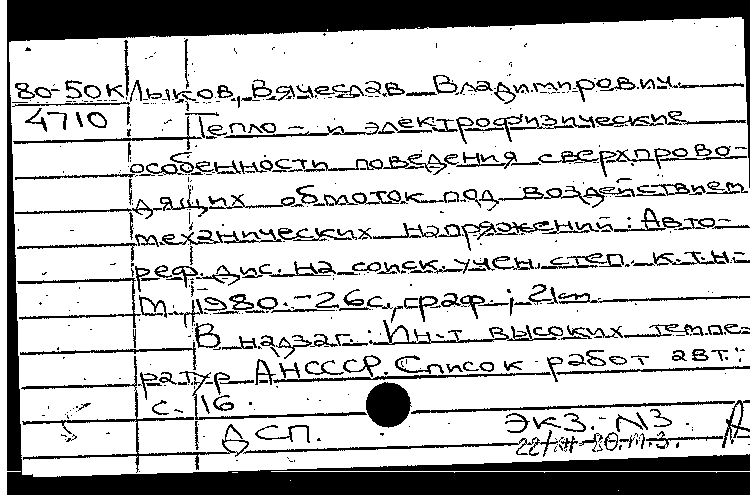 80-50к Лыков, Вячеслав Владимирович.
4710 Тепло- и электрофизические
особенности поведения сверхпрово-
дящих обмоток под воздействием
механических напряжений: Авто-
реф. дис. на соиск. учен. степ. к.т.н.-
М., 1980.-26с, граф.; 21см
В надзаг.: Ин-т высоких темпе-
ратур АНСССР. Список работ авт.:
с. 16.
ДСП. Экз.-N3